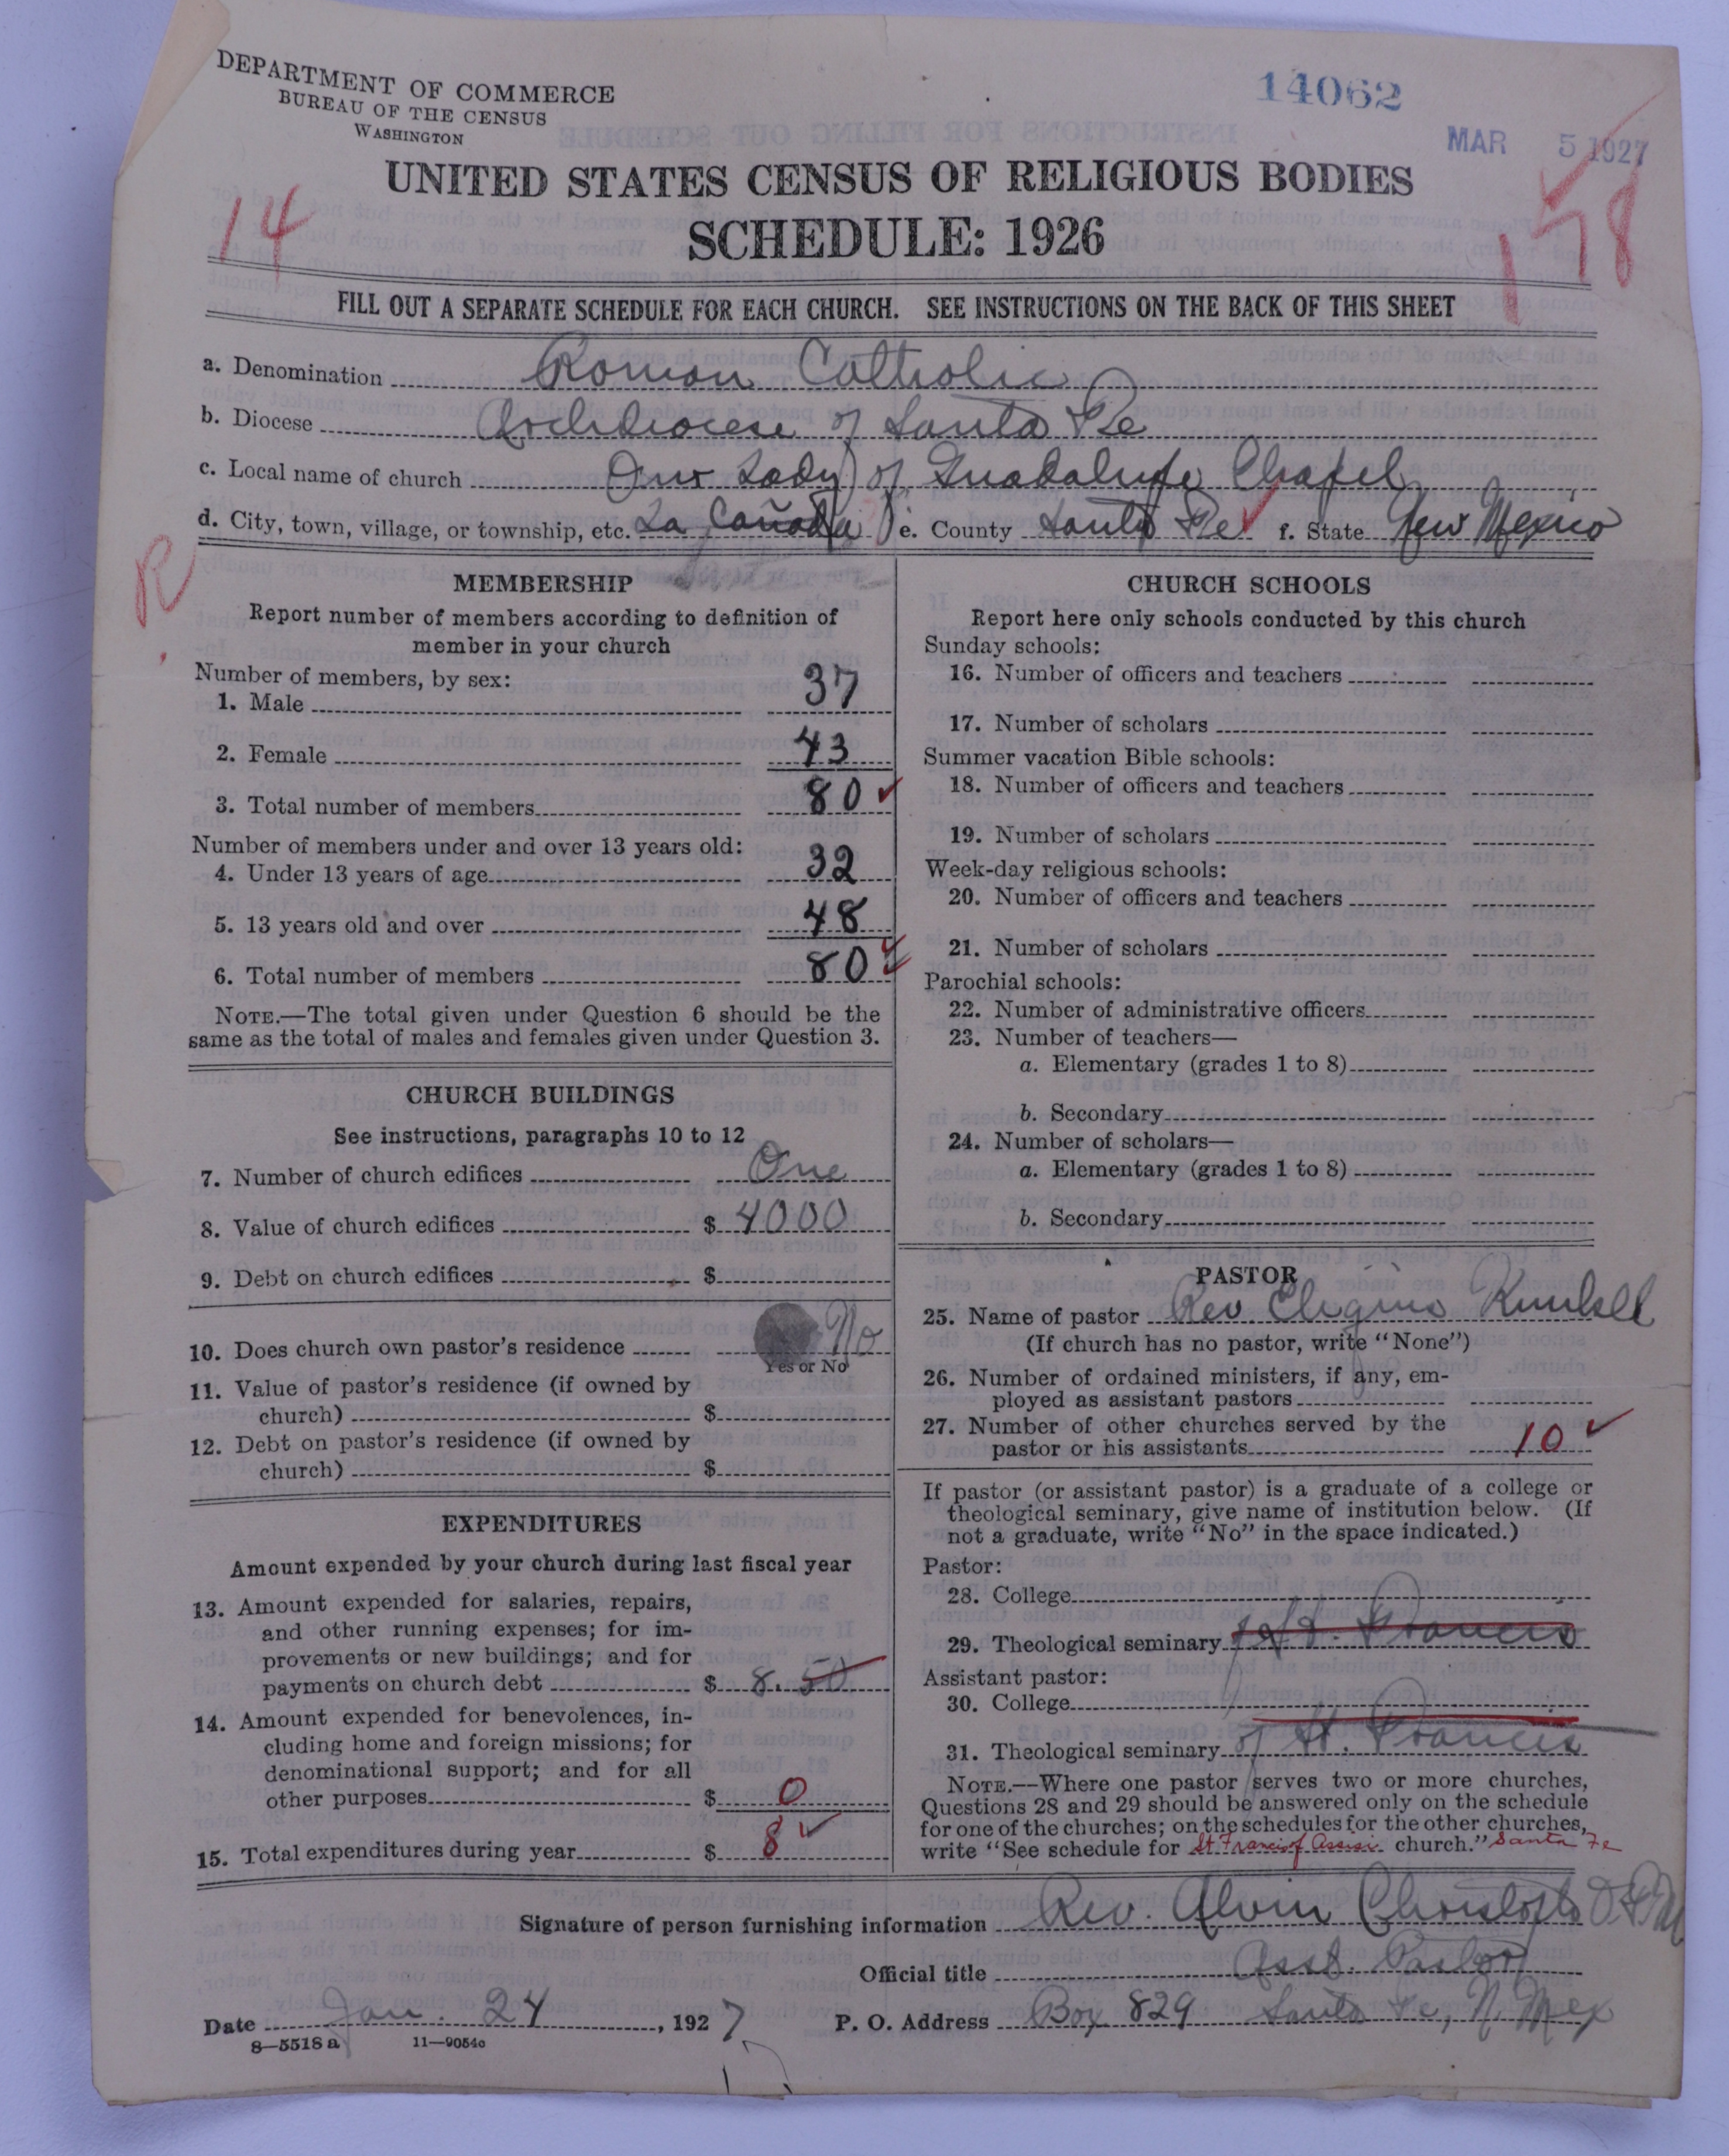 DEPARTMENT OF COMMERCE
BUREAU OF THE CENSUS
WASHINGTON
14062
MAR 5 1927
UNITED STATES CENSUS OF RELIGIOUS BODIES
SCHEDULE: 1926
14
158
FILL OUT A SEPARATE SCHEDULE FOR EACH CHURCH. SEE INSTRUCTIONS ON THE BACK OF THIS SHEET
a. Denomination Roman Catholic
b. Diocese Archdiocese of Santa Fe
c. Local name of church Our Lady of Guadalupe Chapel
d. City, town, village, or township, etc. La Cañada e. County Santa Fe f. State New Mexico
R
MEMBERSHIP
Report number of members according to definition of
member in your church
Number of members, by sex:
1. Male 37
2. Female 43
3. Total number of members 80
Number of members under and over 13 years old:
4. Under 13 years of age 32
5. 13 years old and over 48
6. Total number of members 80
NOTE.—The total given under Question 6 should be the
same as the total of males and females given under Question 3.
CHURCH BUILDINGS
See instructions, paragraphs 10 to 12
7. Number of church edifices One
8. Value of church edifices $ 4000
9. Debt on church edifices $
10. Does church own pastor's residence No
Yes or No
11. Value of pastor's residence (if owned by
church) $
12. Debt on pastor's residence (if owned by
church) $
EXPENDITURES
Amount expended by your church during last fiscal year
13. Amount expended for salaries, repairs,
and other running expenses; for im-
provements or new buildings; and for
payments on church debt $ 8.50
14. Amount expended for benevolences, in-
cluding home and foreign missions; for
denominational support; and for all
other purposes $ 0
15. Total expenditures during year $ 8
CHURCH SCHOOLS
Report here only schools conducted by this church
Sunday schools:
16. Number of officers and teachers
17. Number of scholars
Summer vacation Bible schools:
18. Number of officers and teachers
19. Number of scholars
Week-day religious schools:
20. Number of officers and teachers
21. Number of scholars
Parochial schools:
22. Number of administrative officers
23. Number of teachers—
a. Elementary (grades 1 to 8)
b. Secondary
24. Number of scholars—
a. Elementary (grades 1 to 8)
b. Secondary
PASTOR
25. Name of pastor Rev Eligius Kunkel
(If church has no pastor, write "None")
26. Number of ordained ministers, if any, em-
ployed as assistant pastors
27. Number of other churches served by the
pastor or his assistants 10
If pastor (or assistant pastor) is a graduate of a college or
theological seminary, give name of institution below. (If
not a graduate, write "No" in the space indicated.)
Pastor:
28. College
29. Theological seminary of St. Francis
Assistant pastor:
30. College
31. Theological seminary of St. Francis
NOTE.—Where one pastor serves two or more churches,
Questions 28 and 29 should be answered only on the schedule
for one of the churches; on the schedules for the other churches,
write "See schedule for St Francis of Assisi church." Santa Fe
Signature of person furnishing information Rev. Alvin O.F.M
Official title Asst. Pastor
Date Jan. 24, 1927 P. O. Address Box 829 Santa Fe, N Mex
8—5518 a 11—9054c